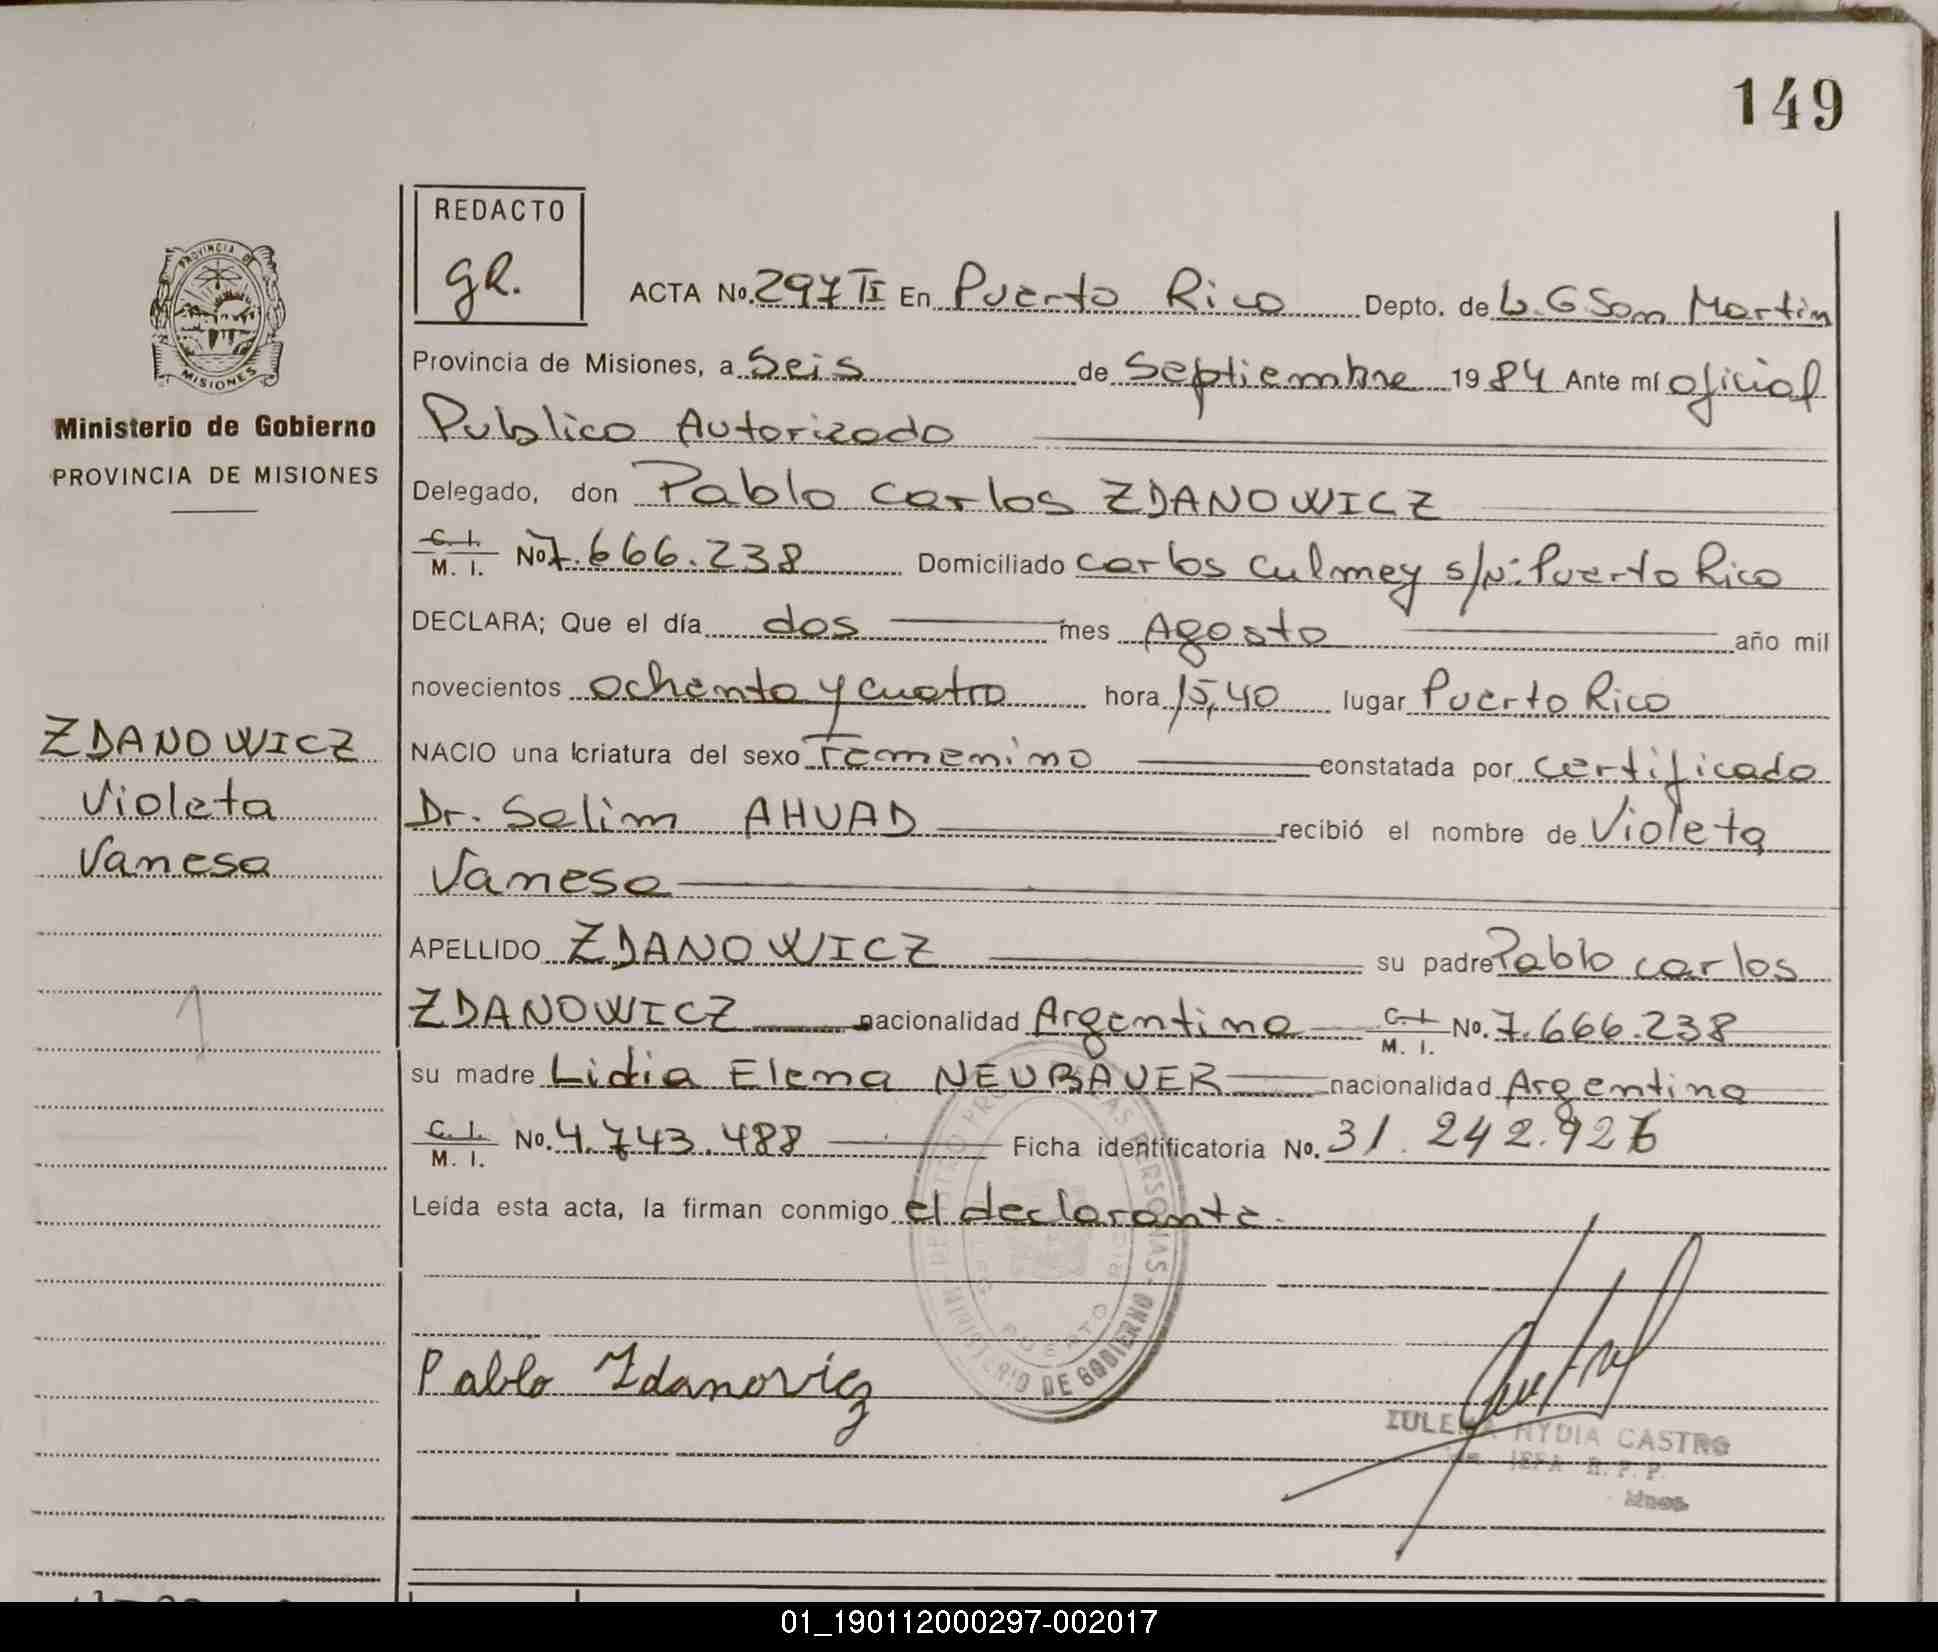 149
REDACTO
gR.
PROVINCIA DE
MISIONES
Ministerio de Gobierno
PROVINCIA DE MISIONES
ZDANOWICZ
Violeta
Vanesa
ACTA No. 297 II En Puerto Rico Depto. de L. G San Martin
Provincia de Misiones, a Seis de Septiembre 1984 Ante mí oficial
Publico Autorizado
Delegado, don Pablo Carlos ZDANOWICZ
C. I. M. I. No 7.666.238 Domiciliado Carlos Culmey s/Nº: Puerto Rico
DECLARA; Que el día dos mes Agosto año mil
novecientos ochenta y cuatro hora 15,40 lugar Puerto Rico
NACIO una criatura del sexo Femenino constatada por certificado
Dr. Selim AHUAD recibió el nombre de Violeta
Vanesa
APELLIDO ZDANOWICZ su padre Pablo Carlos
ZDANOWICZ nacionalidad Argentina C. I. M. I. No. 7.666.238
su madre Lidia Elena NEUBAUER nacionalidad Argentina
C. I. M. I. No. 4.743.488 Ficha identificatoria No. 31.242.926
Leída esta acta, la firman conmigo el declarante.
Pablo Zdanovicz
MINISTERIO DE GOBIERNO
PUERTO RICO
NYDIA CASTRO
R. P. P.
Mnes.
01_190112000297-002017